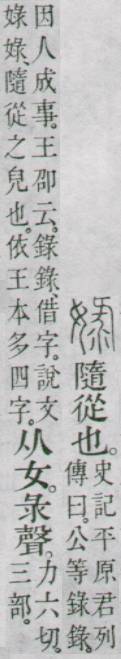 娽 隨從也。
史記平原君列
傳曰。公等錄錄。
因人成事。王卲云。錄錄、借字。說文
娽娽、隨從之皃也。依王本多四字。
从女。彔聲。
力六切。
三部。